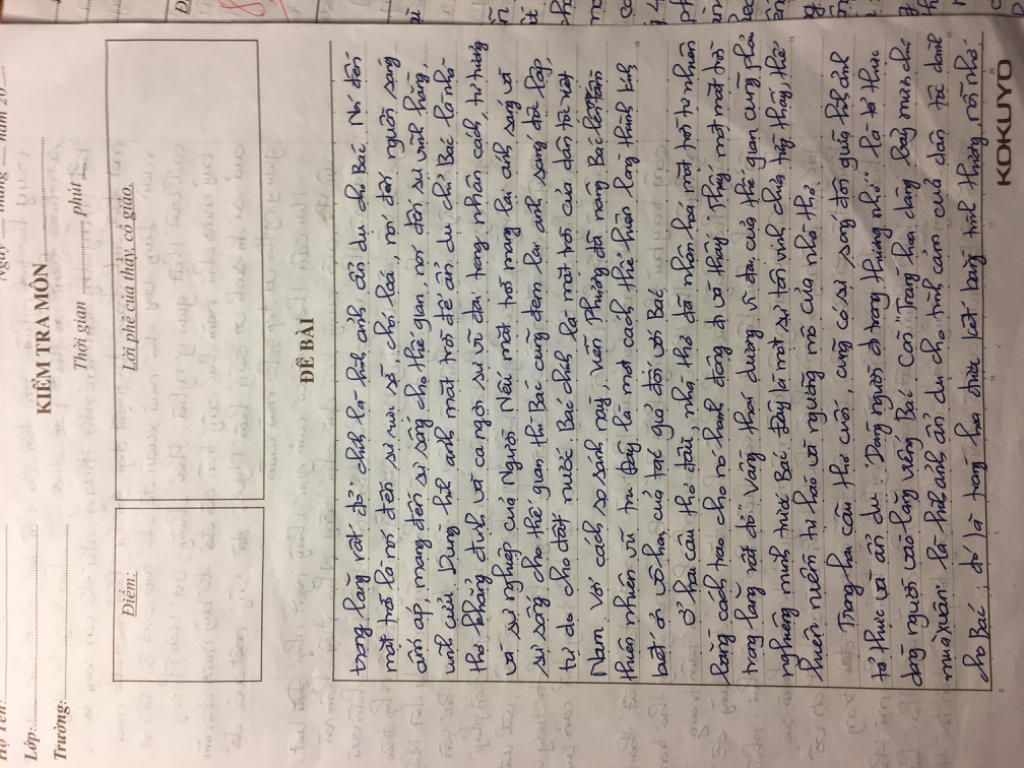 Họ Tên:
Ngày tháng năm 20
Lớp:
KIỂM TRA MÔN
Trường:
Thời gian phút
Điểm:
Lời phê của thầy, cô giáo.
ĐỀ BÀI
trong lăng rất đỏ" chính là hình ảnh ẩn dụ cho Bác. Nói đến
mặt trời là nói đến sự rực rỡ, chói loá, nói đến nguồn sáng
ấm áp, mang đến sự sống cho thế gian, nói đến sự vĩnh hằng,
vĩnh cửu. Dùng hình ảnh mặt trời để ẩn dụ chỉ Bác là nhà
thơ khẳng định và ca ngợi sự vĩ đại trong nhân cách, tư tưởng
và sự nghiệp của Người. Nếu mặt trời mang lại ánh sáng và
sự sống cho thế gian thì Bác cũng đem lại ánh sáng độc lập,
tự do cho đất nước. Bác chính là mặt trời của dân tộc Việt
Nam. Với cách so sánh này, Viễn Phương đã nâng Bác lên tầm
thiên nhiên vũ trụ. Đây là một cách thể hiện lòng thành kính
biết ơn vô hạn của tác giả đối với Bác.
Ở hai câu thơ đầu, nhà thơ đã nhân hoá mặt trời tự nhiên
bằng cách trao cho nó hành động đi và thấy "Thấy một mặt trời
trong lăng rất đỏ". Vầng thái dương vĩ đại của thế gian cũng phải
nghiêng mình trước Bác. Đây là một sự tôn vinh chưa từng thấy, thể
hiện niềm tự hào và ngưỡng mộ của nhà thơ.
Trong hai câu thơ cuối, cũng có sự sóng đôi giữa hình ảnh
tả thực và ẩn dụ. "Dòng người đi trong thương nhớ" là tả thực
dòng người vào lăng viếng Bác. Còn "Tràng hoa dâng bảy mươi chín
mùa xuân" là hình ảnh ẩn dụ cho tình cảm của dân tộc dành
cho Bác, đó là tràng hoa được kết bằng tình thương, nỗi nhớ,
KOKUYO